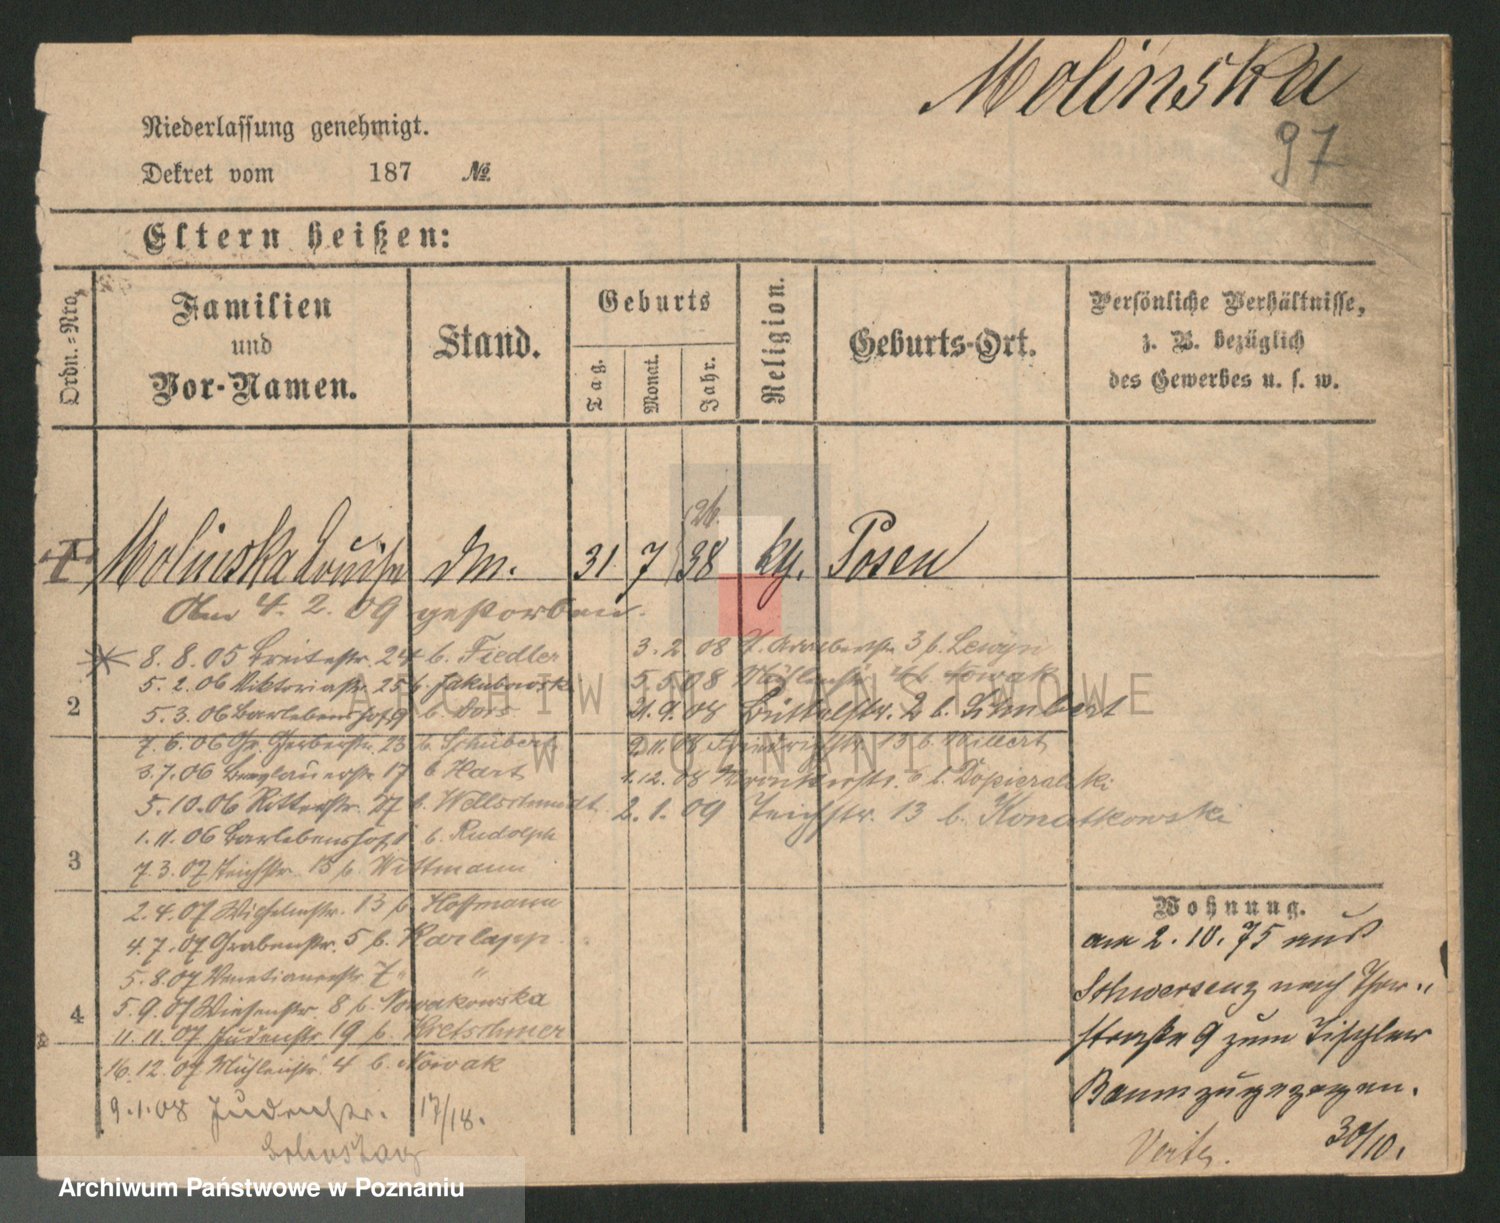 Molinska
97
Niederlassung genehmigt.
Dekret vom 187 №
Eltern heißen:
Ordn.-Nro.
Familien
und
Vor-Namen.
Stand.
Geburts
Tag.
Monat.
Jahr.
Religion.
Geburts-Ort.
Persönliche Verhältnisse,
z. B. bezüglich
des Gewerbes u. s. w.
26.
1 Molinska Louise dm. 31 7 38 kg. Posen
Am 4. 2. 09 gestorben.
8. 8. 05 Breitestr. 24 b. Fiedler
5. 2. 06 Viktoriastr. 25 b. Jakubowski
2
5. 3. 06 Barlebenshof 9 b. Dors
7. 6. 06 Gr. Gerberstr. 23 b. Schubert
3. 7. 06 Breslauerstr. 17 b. Hart
5. 10. 06 Ritterstr. 27 b. Wellschmidt
1. 11. 06 Barlebenshof 1 b. Rudolph
3
7. 3. 07 Teichstr. 13 b. Wittmann
2. 4. 07 Wilhelmstr. 13 b. Hoffmann
4. 7. 07 Grabenstr. 5 b. Karlapp
5. 8. 07 Venetianerstr. 7 " "
5. 9. 07 Wiesenstr. 8 b. Nowakowska
4
11. 11. 07 Judenstr. 19 b. Kretschmer
16. 12. 07 Mühlenstr. 4 b. Nowak
9. 1. 08 Judenstr. 17/18.
3. 2. 08 3 b. Lewyn
5. 5. 08 Mühlenstr. 4 b. Nowak
21. 9. 08 Büttelstr. 2 b. Schubert
9. 11. 08 Friedrichstr. 13 b. Willert
1. 12. 08 Wronkerstr. 6 b. Dopieralski
2. 1. 09 Teichstr. 13 b. Konatkowski
Wohnung.
am 2. 10. 75 aus
Schwersenz nach Thor-
straße 9 zum Tischler
Baum zugezogen.
30/10.
ARCHIWUM PAŃSTWOWE
W POZNANIU
Archiwum Państwowe w Poznaniu